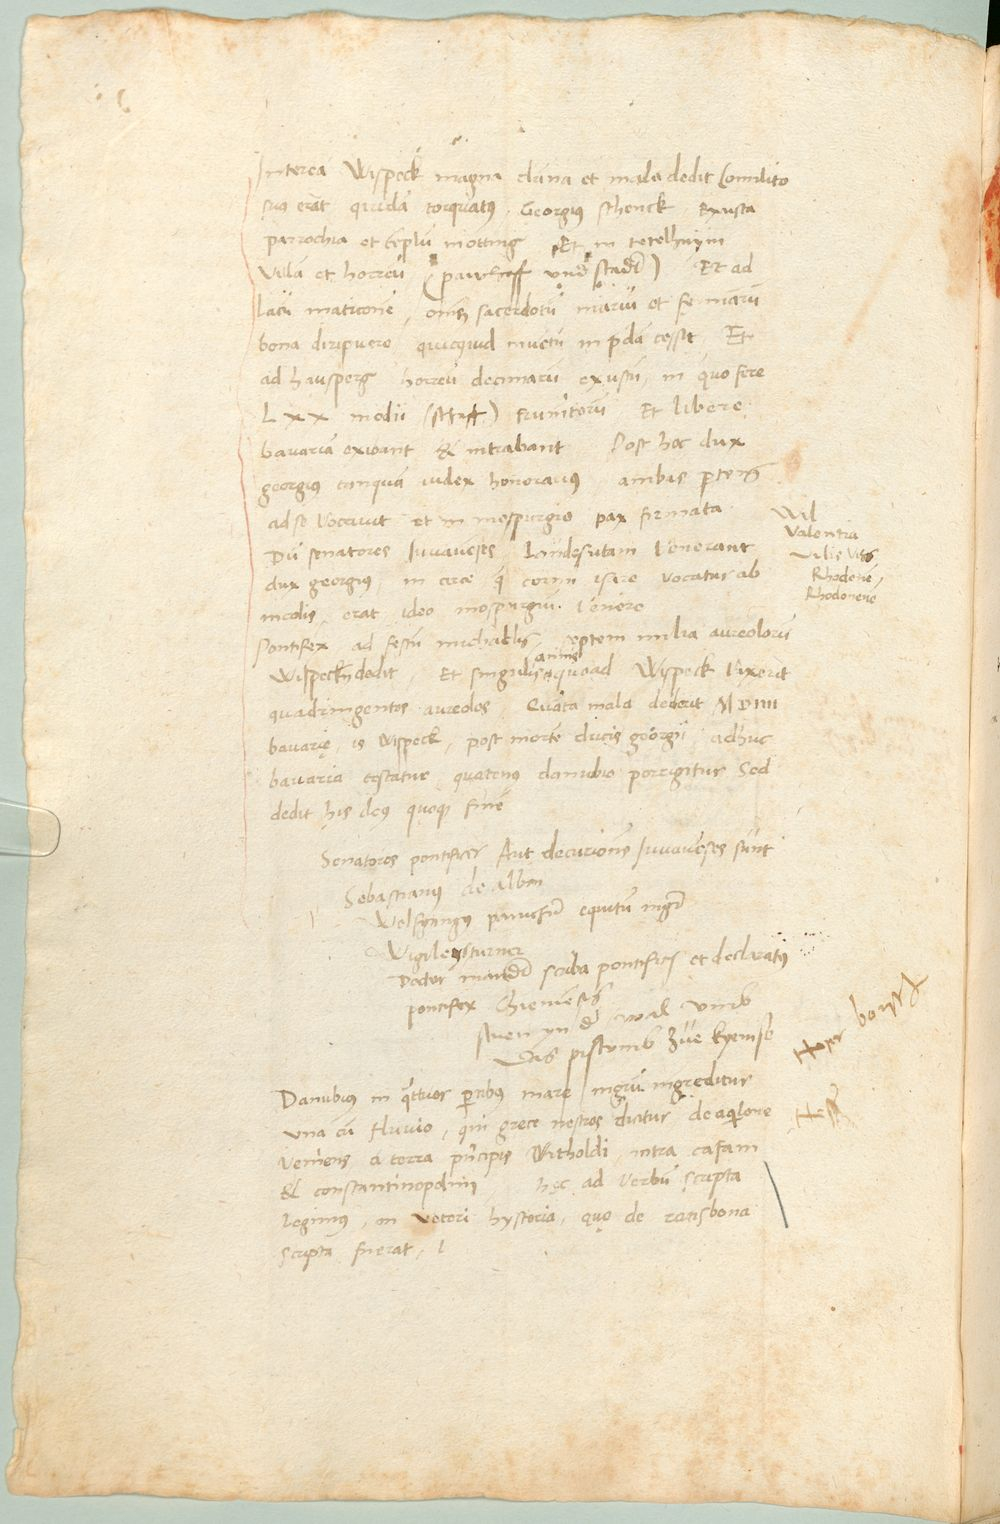 Interea Wispeck magna dāna et mala dedit Comilito
suus erāt quidā torquatus. Georgius schenck. Exusta
parrochia et teplū motting Et in tetelhaym
villa et horreū (paurhoff und stadl) Et ad
lacū maticonē, oīm sacerdotū marium et feminarū
bona diripuere quicquid inuētū in pdā cessit. Et
ad hausperg horreū decimarū exustū, in quo fere
Lxx modii (schaff) frumētorū Et libere
bavariā exibant & intrabant Post hec dux
georgius tanquā iudex honoratus ambas partes
ad se vocauit et in mospurgio pax firmata
Dū senatores Iuvavēses Landesutam venerant
dux georgius, in arce q̄ cornu isare vocatur ab
incolis, erat, ideo mospurgiū venere
Pontifex ad festū michaelis, septem milia aureolorū
Wispeck dedit, Et singulis annis quoad Wispeck vixerit
quadringentos aureolos. Quāta mala dederit MDIIII
bavarię, is Wispeck, post mortē ducis georgii, adhuc
bavaria testatur, quatenus danubio porrigitur Sed
dedit his deus quoque finē
Wil
Valentia
Vilis Vils
Rhodene,
Rhodonene
Senatores pontificis Aut decuriones Iuvavēses sunt
Sebastianus de albm
Wolfgangus equitū mgr
Wigileus turner
Doctor scriba pontificis et declaratus
pontifex Chiemēsis
wal umb
Das pistumb Zue kyemse
Danubius in q̄ttuor partibus mare nigrū ingreditur
una cū fluvio, qui grece nestros dicitur, de aquilone
veniens a terra principis Witholdi, intra cafam
& constantinopolim hęc ad verbū scripta
legimus, in veteri hystoria, quę de ratisbona
scripta fuerat,